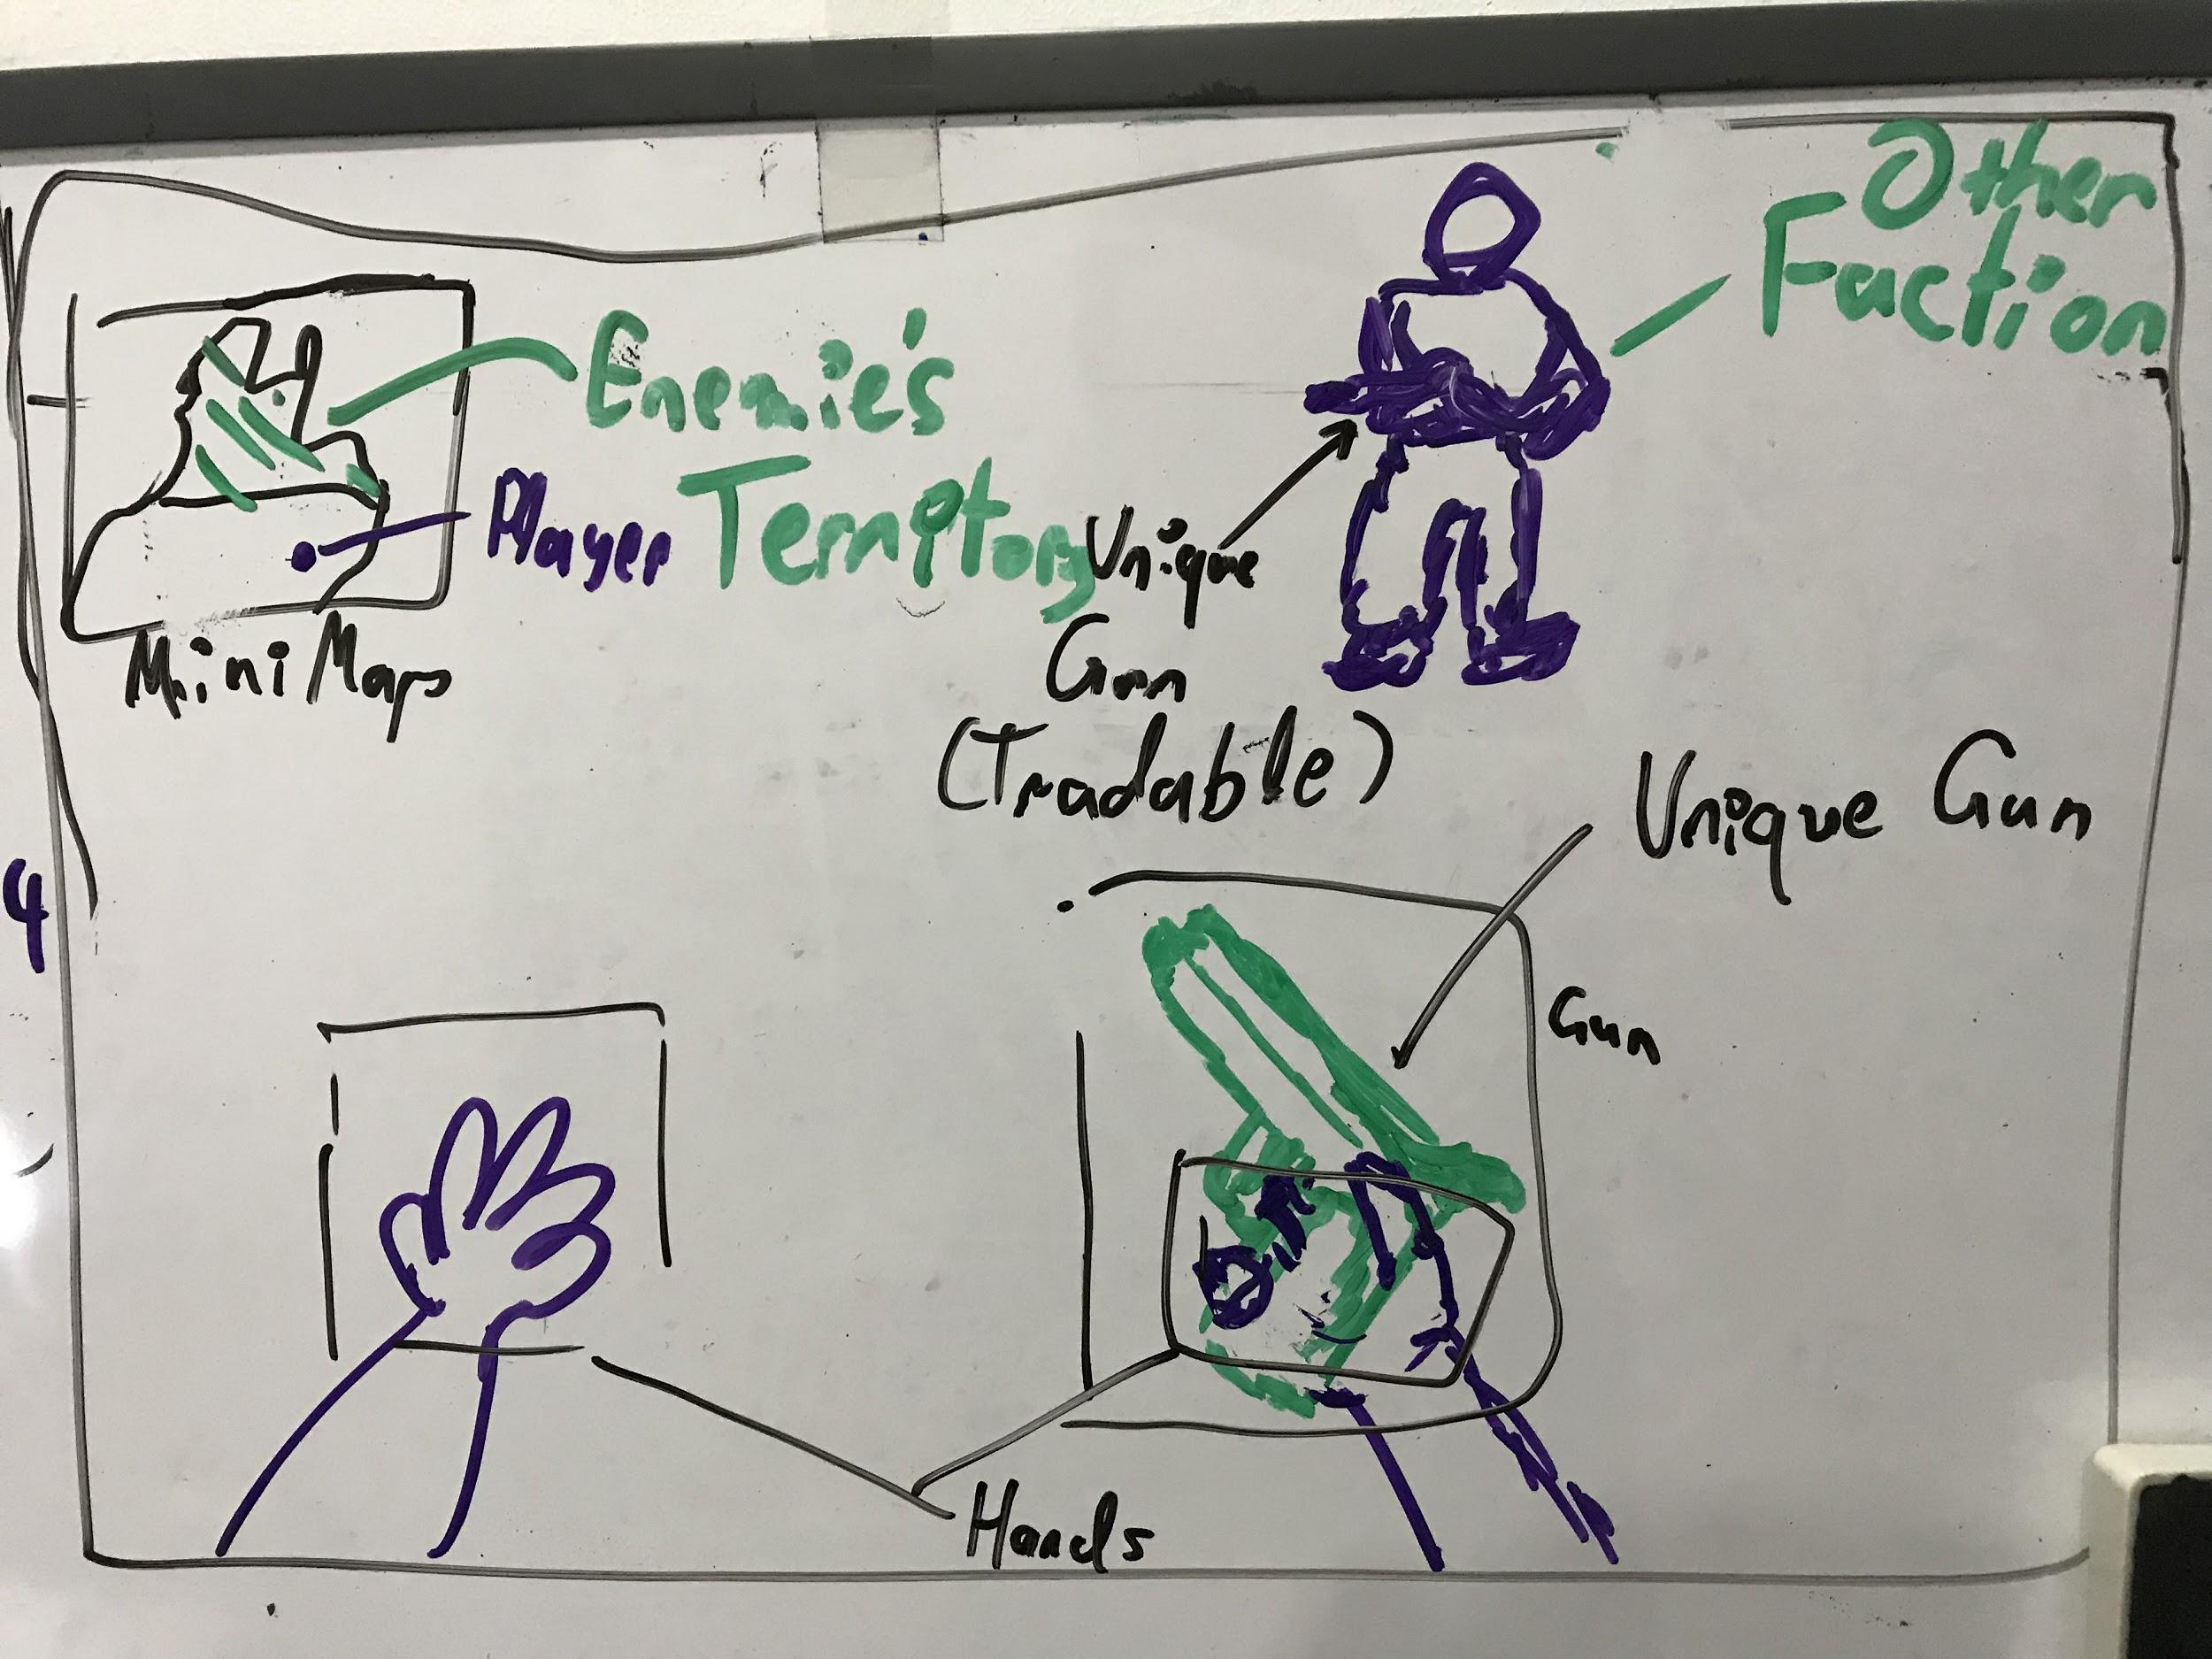 Other
Faction
Enemie's
Territory
Player
Mini Maps
Unique
Gun
(Tradable)
Unique Gun
Gun
4
Hands